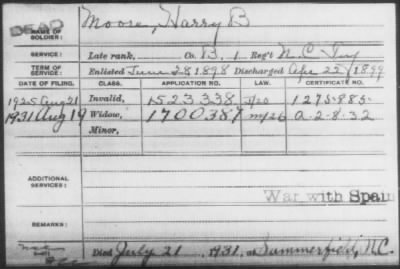 DEAD
NAME OF SOLDIER: Moore, Harry B
SERVICE: Late rank, Co. B, 1 Reg't N.C. Inf
TERM OF SERVICE: Enlisted June 28 1898 Discharged Apr 22 1899
DATE OF FILING. CLASS. APPLICATION NO. LAW. CERTIFICATE NO.
1925 Aug 21 Invalid, 1523338 1275885
1931 Aug 19 Widow, 1700387 A-2-8-32
Minor,
ADDITIONAL SERVICES:
War with Spain
REMARKS:
Died July 21, 1931, at Summerfield, N.C.